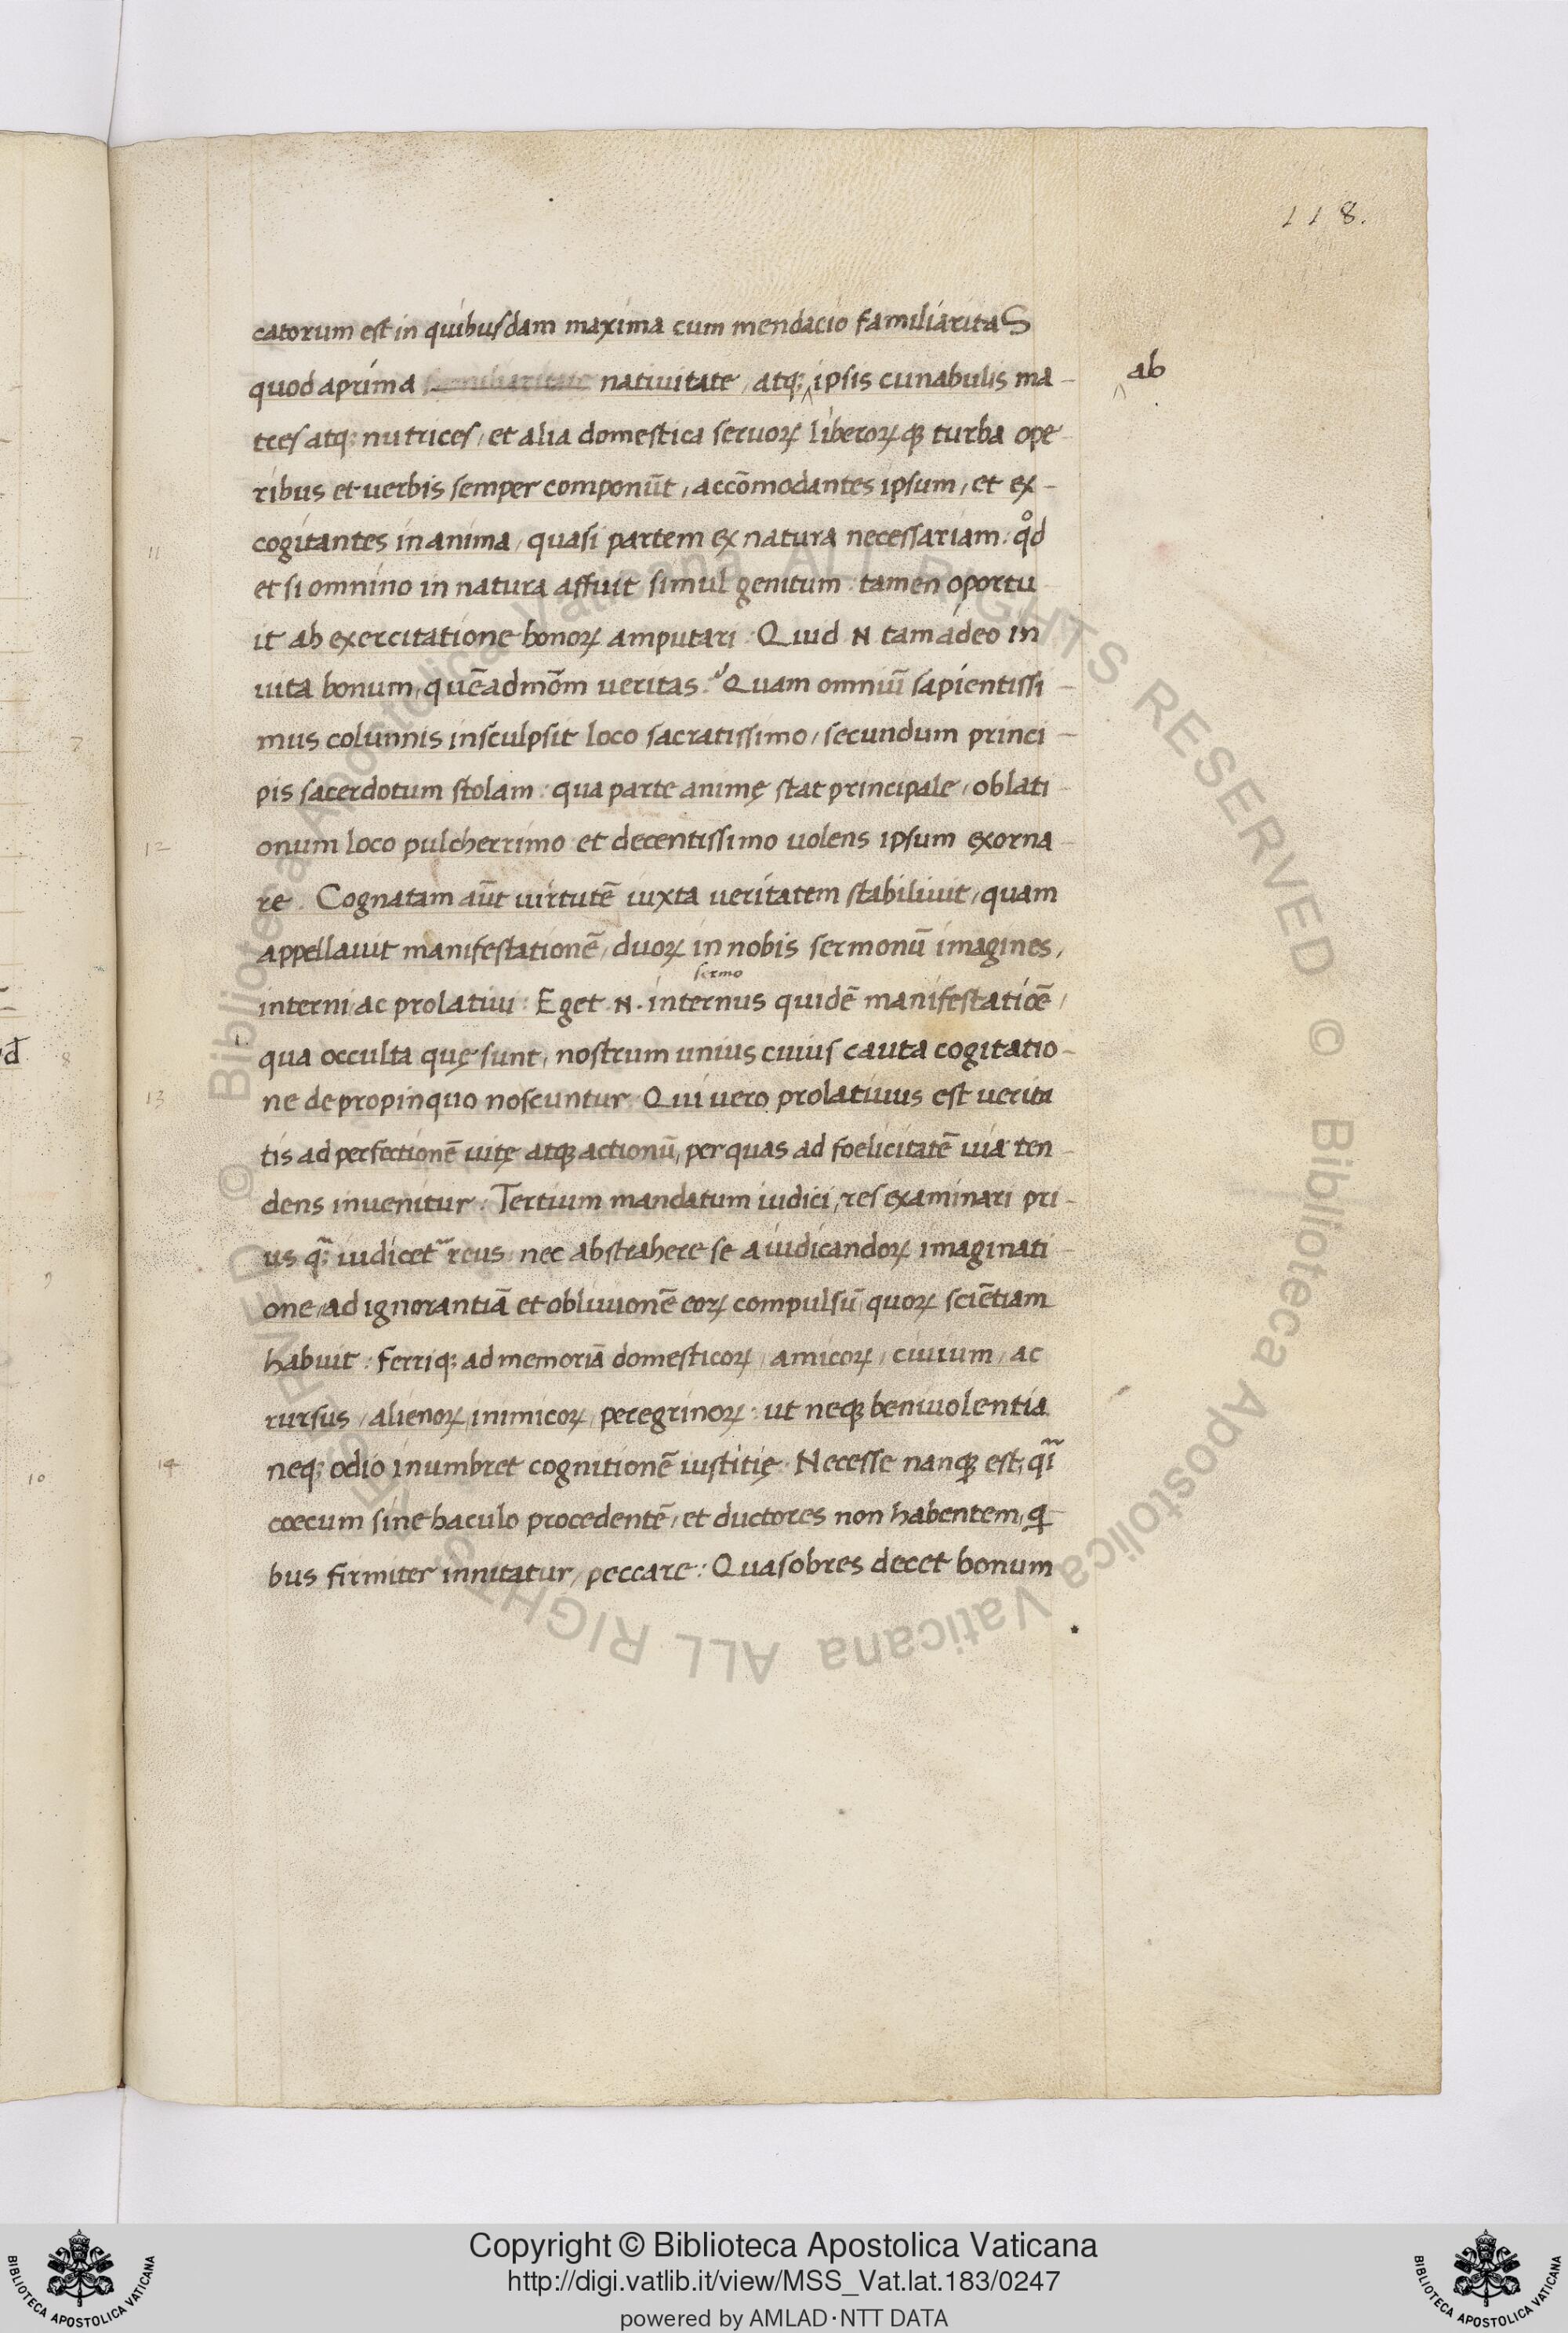 118.
catorum est in quibusdam maxima cum mendacio familiaritaS
quod a prima familiaritate natiuitate, atq; ‸ ipsis cunabulis ma-
‸ ab
tres atq; nutrices, et alia domestica seruoꝝ liberoꝝqꝫ turba ope
ribus et uerbis semper componūt, accōmodantes ipsum, et ex-
cogitantes in anima, quasi partem ex natura necessariam: qͦd
11
et si omnino in natura affuit simul genitum: tamen oportu
it ab exercitatione bonoꝝ amputari. Quid N tam adeo in
uita bonum, quēadmōm ueritas? Quam omniū sapientissi-
mus columnis insculpsit loco sacratissimo, secundum princi-
pis sacerdotum stolam: qua parte animę stat principale, oblati-
onum loco pulcherrimo et decentissimo uolens ipsum exorna-
12
re. Cognatam aūt uirtutē iuxta ueritatem stabiliuit, quam
appellauit manifestationē, duoꝝ in nobis sermonū imagines,
sermo
interni ac prolatiui: Eget .N. internus quidē manifestatiōe,
qua occulta quę sunt, nostrum unius cuius cauta cogitatio-
ne de propinquo noscuntur. Qui uero prolatiuus est uerita
13
tis ad perfectionē uitę atqꝫ actionū, per quas ad foelicitatē uia ten-
dens inuenitur: Tertium mandatum iudici, res examinari pri-
us q̃; iudicet̃ reus: nec abstrahere se a iudicandoꝝ imaginati-
one, ad ignorantiā et obliuionē eoꝝ compulsū, quoꝝ sciētiam
habuit: ferriq; ad memoriā domesticoꝝ, amicoꝝ, ciuium, ac
rursus, alienoꝝ, inimicoꝝ, peregrinoꝝ: ut neqꝫ beniuolentia
neq; odio inumbret cognitionē iustitię. Necesse nanqꝫ est, qı̃
14
coecum sine baculo procedentē, et ductores non habentem, ꝗ-
bus firmiter innitatur, peccare: Quasobres decet bonum
7
d
8
9
10
© Biblioteca Apostolica Vaticana ALL RIGHTS RESERVED © Biblioteca Apostolica Vaticana ALL RIGHTS RESERVED
BIBLIOTECA APOSTOLICA VATICANA
Copyright © Biblioteca Apostolica Vaticana
http://digi.vatlib.it/view/MSS_Vat.lat.183/0247
powered by AMLAD·NTT DATA
BIBLIOTECA APOSTOLICA VATICANA